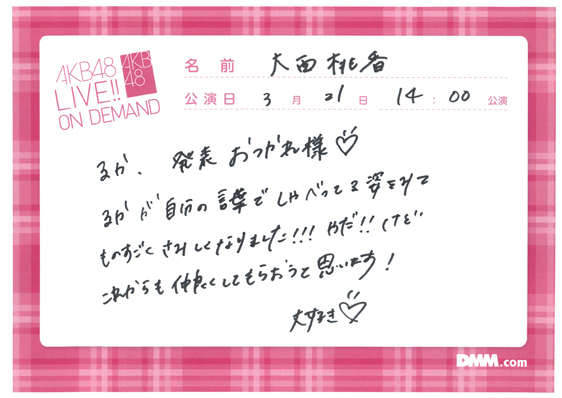 AKB48
LIVE!!
ON DEMAND
AKB
48
名前 大西桃香
公演日 3月21日 14:00公演
るか、発表おつかれ様♡
るかが自分の言葉でしゃべってる姿をみて
ものすごくさみしくなりました!!!やだ!!けど
これからも仲良くしてもらおうと思います!
大好き♡
DMM.com